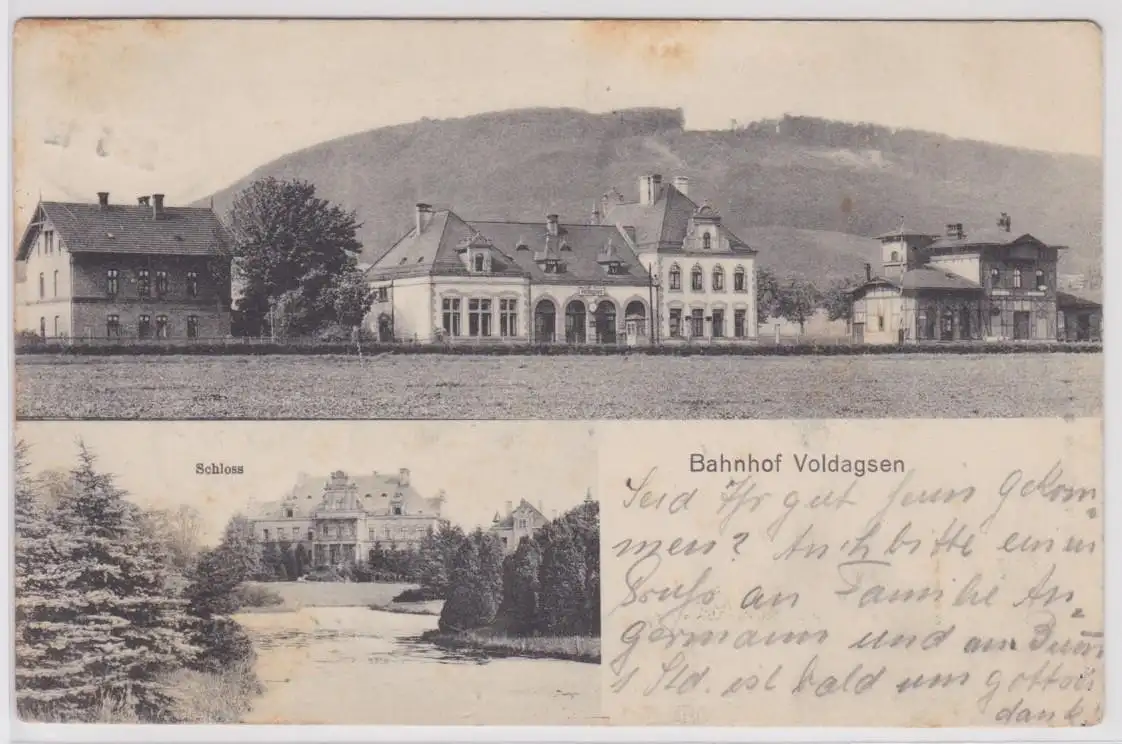 Schloss
Bahnhof Voldagsen
Seid Ihr gut heim gekom-
men? Auch bitte einen
Gruss an Familie An-
germann und am
1 Std. ist bald um gottsei
dank!